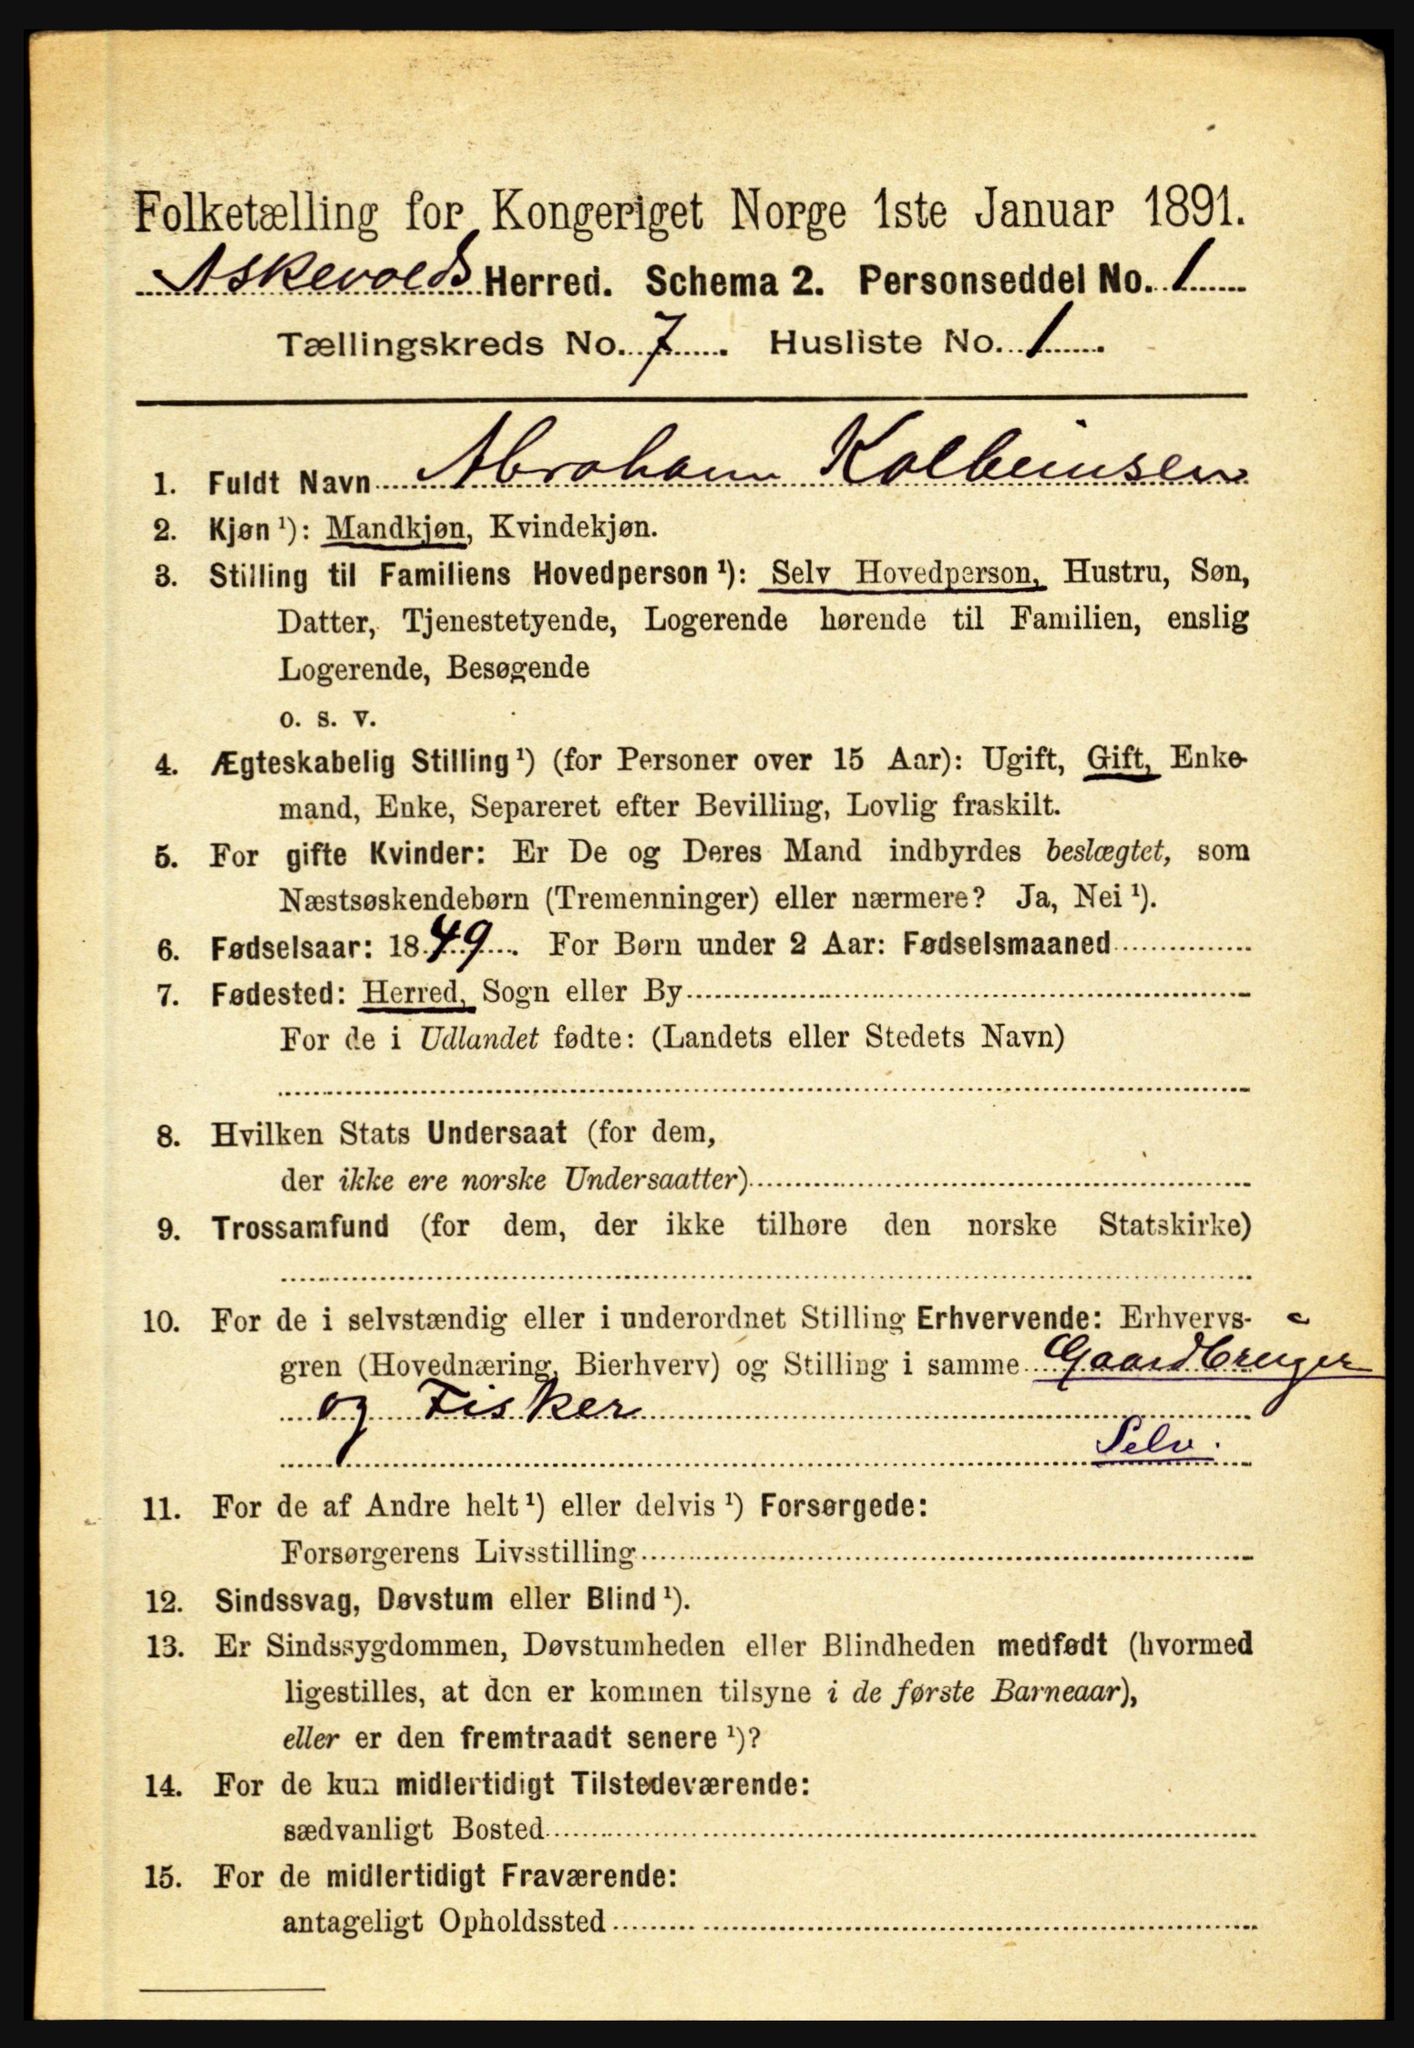 Folketælling for Kongeriget Norge 1ste Januar 1891.
Askevolds Herred. Schema 2. Personseddel No. 1
Tællingskreds No. 7. Husliste No. 1.
1. Fuldt Navn Abraham Kolbeinsen
2. Kjøn ¹): Mandkjøn, Kvindekjøn.
3. Stilling til Familiens Hovedperson ¹): Selv Hovedperson, Hustru, Søn,
Datter, Tjenestetyende, Logerende hørende til Familien, enslig
Logerende, Besøgende
o. s. v.
4. Ægteskabelig Stilling ¹) (for Personer over 15 Aar): Ugift, Gift, Enke-
mand, Enke, Separeret efter Bevilling, Lovlig fraskilt.
5. For gifte Kvinder: Er De og Deres Mand indbyrdes beslægtet, som
Næstsøskendebørn (Tremenninger) eller nærmere? Ja, Nei ¹).
6. Fødselsaar: 1849. For Børn under 2 Aar: Fødselsmaaned
7. Fødested: Herred, Sogn eller By
For de i Udlandet fødte: (Landets eller Stedets Navn)
8. Hvilken Stats Undersaat (for dem,
der ikke ere norske Undersaatter)
9. Trossamfund (for dem, der ikke tilhøre den norske Statskirke)
10. For de i selvstændig eller i underordnet Stilling Erhvervende: Erhvervs-
gren (Hovednæring, Bierhverv) og Stilling i samme Gaardbruger
og Fisker
Selv.
11. For de af Andre helt ¹) eller delvis ¹) Forsørgede:
Forsørgerens Livsstilling
12. Sindssvag, Døvstum eller Blind ¹).
13. Er Sindssygdommen, Døvstumheden eller Blindheden medfødt (hvormed
ligestilles, at den er kommen tilsyne i de første Barneaar),
eller er den fremtraadt senere ¹)?
14. For de kun midlertidigt Tilstedeværende:
sædvanligt Bosted
15. For de midlertidigt Fraværende:
antageligt Opholdssted